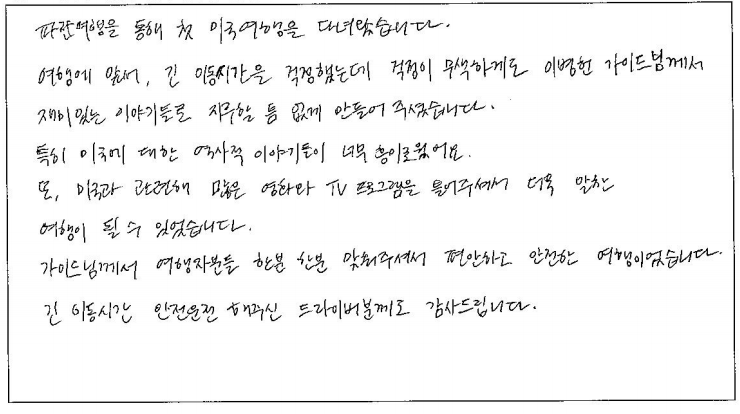 파란여행을 통해 첫 미국여행을 다녀왔습니다.
여행에 앞서, 긴 이동시간을 걱정했는데 걱정이 무색하게도 이병헌 가이드님께서
재미있는 이야기들로 지루할 틈 없게 만들어 주셨습니다.
특히 미국에 대한 역사적 이야기들이 너무 흥미로웠어요.
또, 미국과 관련해 많은 영화와 TV 프로그램을 틀어주셔서 더욱 알찬
여행이 될 수 있었습니다.
가이드님께서 여행자분들 한분 한분 맞춰주셔서 편안하고 안전한 여행이었습니다.
긴 이동시간 안전운전 해주신 드라이버분께도 감사드립니다.